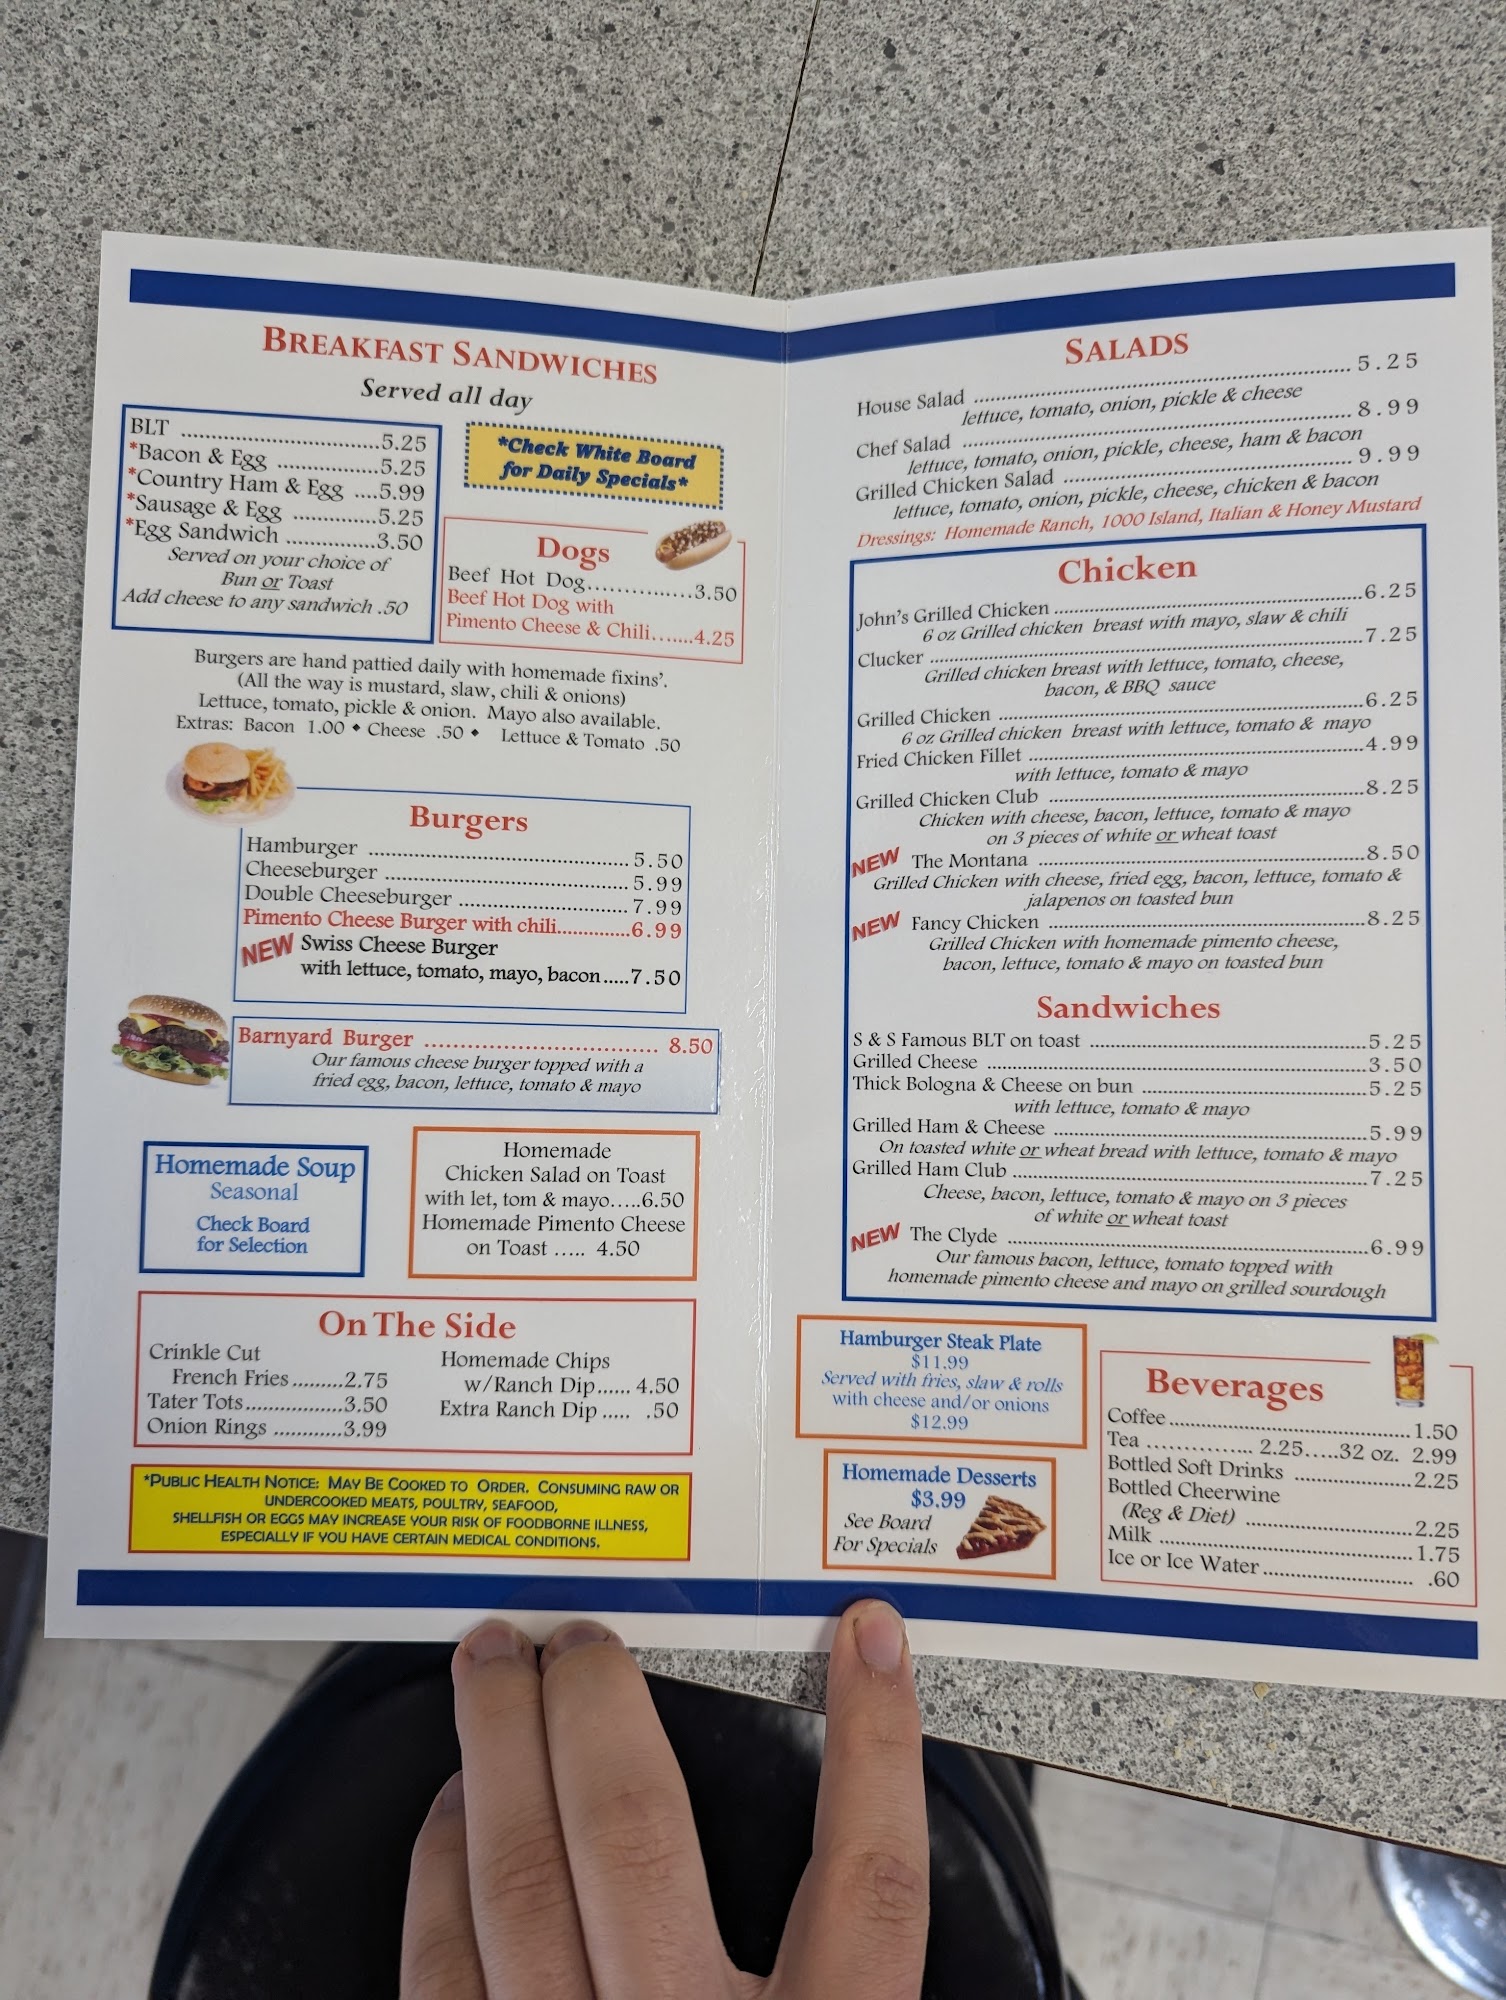 BREAKFAST SANDWICHES
Served all day
BLT ..............................5.25
*Bacon & Egg ................5.25
*Country Ham & Egg ....5.99
*Sausage & Egg .............5.25
*Egg Sandwich ..............3.50
Served on your choice of
Bun or Toast
Add cheese to any sandwich .50
*Check White Board
for Daily Specials*
Dogs
Beef Hot Dog................3.50
Beef Hot Dog with
Pimento Cheese & Chili.......4.25
Burgers are hand pattied daily with homemade fixins'.
(All the way is mustard, slaw, chili & onions)
Lettuce, tomato, pickle & onion. Mayo also available.
Extras: Bacon 1.00 ♦ Cheese .50 ♦ Lettuce & Tomato .50
Burgers
Hamburger ........................................ 5.50
Cheeseburger ..................................... 5.99
Double Cheeseburger .......................... 7.99
Pimento Cheese Burger with chili.............6.99
NEW Swiss Cheese Burger
with lettuce, tomato, mayo, bacon.....7.50
Barnyard Burger .................................. 8.50
Our famous cheese burger topped with a
fried egg, bacon, lettuce, tomato & mayo
Homemade Soup
Seasonal
Check Board
for Selection
Homemade
Chicken Salad on Toast
with let, tom & mayo.....6.50
Homemade Pimento Cheese
on Toast ..... 4.50
On The Side
Crinkle Cut
French Fries.........2.75
Tater Tots.................3.50
Onion Rings ............3.99
Homemade Chips
w/Ranch Dip...... 4.50
Extra Ranch Dip ..... .50
*PUBLIC HEALTH NOTICE: MAY BE COOKED TO ORDER. CONSUMING RAW OR
UNDERCOOKED MEATS, POULTRY, SEAFOOD,
SHELLFISH OR EGGS MAY INCREASE YOUR RISK OF FOODBORNE ILLNESS,
ESPECIALLY IF YOU HAVE CERTAIN MEDICAL CONDITIONS.
SALADS
House Salad ............................................................ 5.25
lettuce, tomato, onion, pickle & cheese
Chef Salad .............................................................. 8.99
lettuce, tomato, onion, pickle, cheese, ham & bacon
Grilled Chicken Salad ............................................. 9.99
lettuce, tomato, onion, pickle, cheese, chicken & bacon
Dressings: Homemade Ranch, 1000 Island, Italian & Honey Mustard
Chicken
John's Grilled Chicken ................................................6.25
6 oz Grilled chicken breast with mayo, slaw & chili
Clucker ....................................................................7.25
Grilled chicken breast with lettuce, tomato, cheese,
bacon, & BBQ sauce
Grilled Chicken .........................................................6.25
6 oz Grilled chicken breast with lettuce, tomato & mayo
Fried Chicken Fillet ....................................................4.99
with lettuce, tomato & mayo
Grilled Chicken Club .................................................8.25
Chicken with cheese, bacon, lettuce, tomato & mayo
on 3 pieces of white or wheat toast
NEW The Montana ...................................................8.50
Grilled Chicken with cheese, fried egg, bacon, lettuce, tomato &
jalapenos on toasted bun
NEW Fancy Chicken .................................................8.25
Grilled Chicken with homemade pimento cheese,
bacon, lettuce, tomato & mayo on toasted bun
Sandwiches
S & S Famous BLT on toast ...........................................5.25
Grilled Cheese ...........................................................3.50
Thick Bologna & Cheese on bun ...................................5.25
with lettuce, tomato & mayo
Grilled Ham & Cheese ................................................5.99
On toasted white or wheat bread with lettuce, tomato & mayo
Grilled Ham Club ......................................................7.25
Cheese, bacon, lettuce, tomato & mayo on 3 pieces
of white or wheat toast
NEW The Clyde .......................................................6.99
Our famous bacon, lettuce, tomato topped with
homemade pimento cheese and mayo on grilled sourdough
Hamburger Steak Plate
$11.99
Served with fries, slaw & rolls
with cheese and/or onions
$12.99
Homemade Desserts
$3.99
See Board
For Specials
Beverages
Coffee.....................................1.50
Tea ................ 2.25.....32 oz. 2.99
Bottled Soft Drinks ..................2.25
Bottled Cheerwine
(Reg & Diet) .........................2.25
Milk .......................................1.75
Ice or Ice Water....................... .60